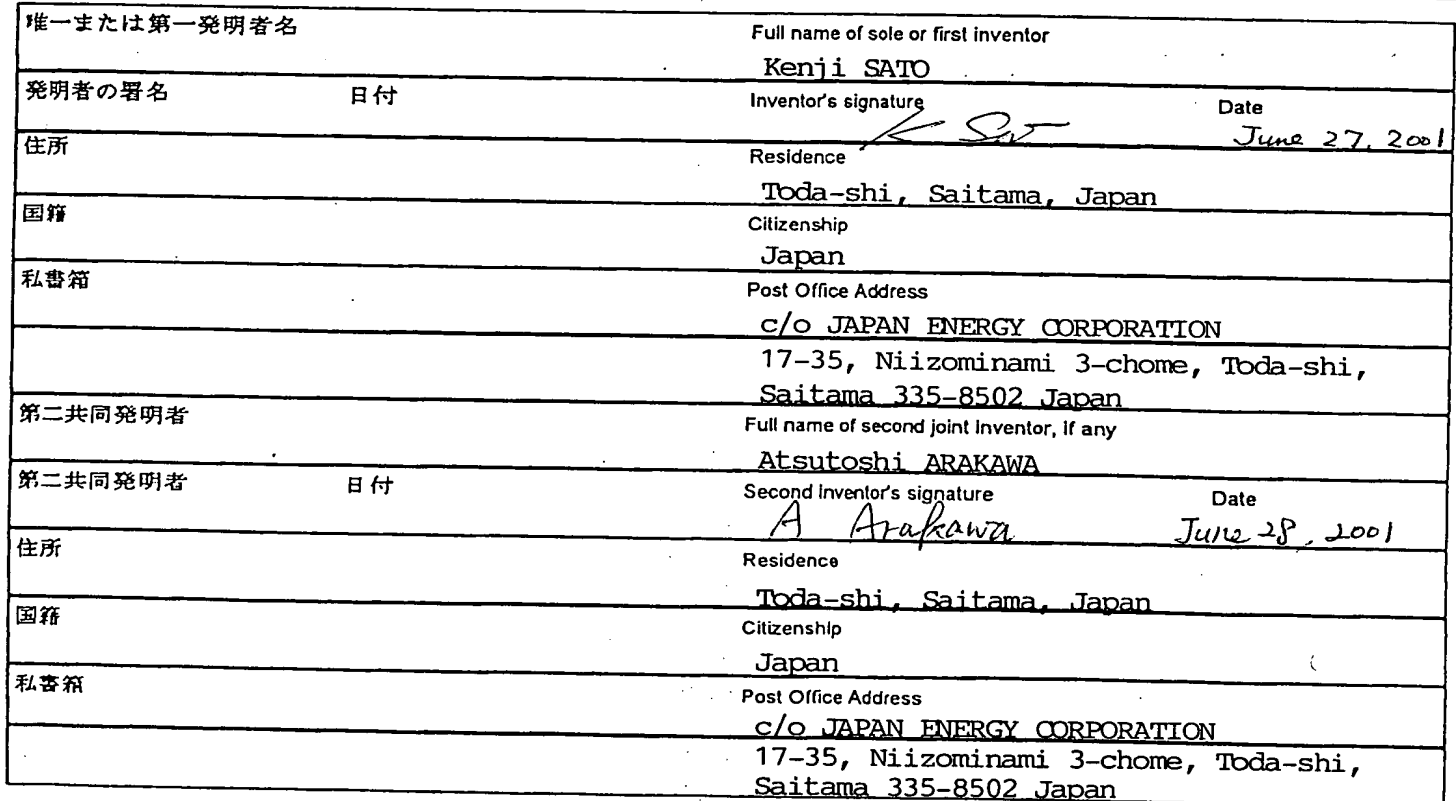 唯一または第一発明者名 Full name of sole or first inventor
Kenji SATO
発明者の署名 日付 Inventor's signature Date
K Sato June 27, 2001
住所 Residence
Toda-shi, Saitama, Japan
国籍 Citizenship
Japan
私書箱 Post Office Address
c/o JAPAN ENERGY CORPORATION
17-35, Niizominami 3-chome, Toda-shi,
Saitama 335-8502 Japan
第二共同発明者 Full name of second joint inventor, if any
Atsutoshi ARAKAWA
第二共同発明者 日付 Second inventor's signature Date
A Arakawa June 28, 2001
住所 Residence
Toda-shi, Saitama, Japan
国籍 Citizenship
Japan
私書箱 Post Office Address
c/o JAPAN ENERGY CORPORATION
17-35, Niizominami 3-chome, Toda-shi,
Saitama 335-8502 Japan